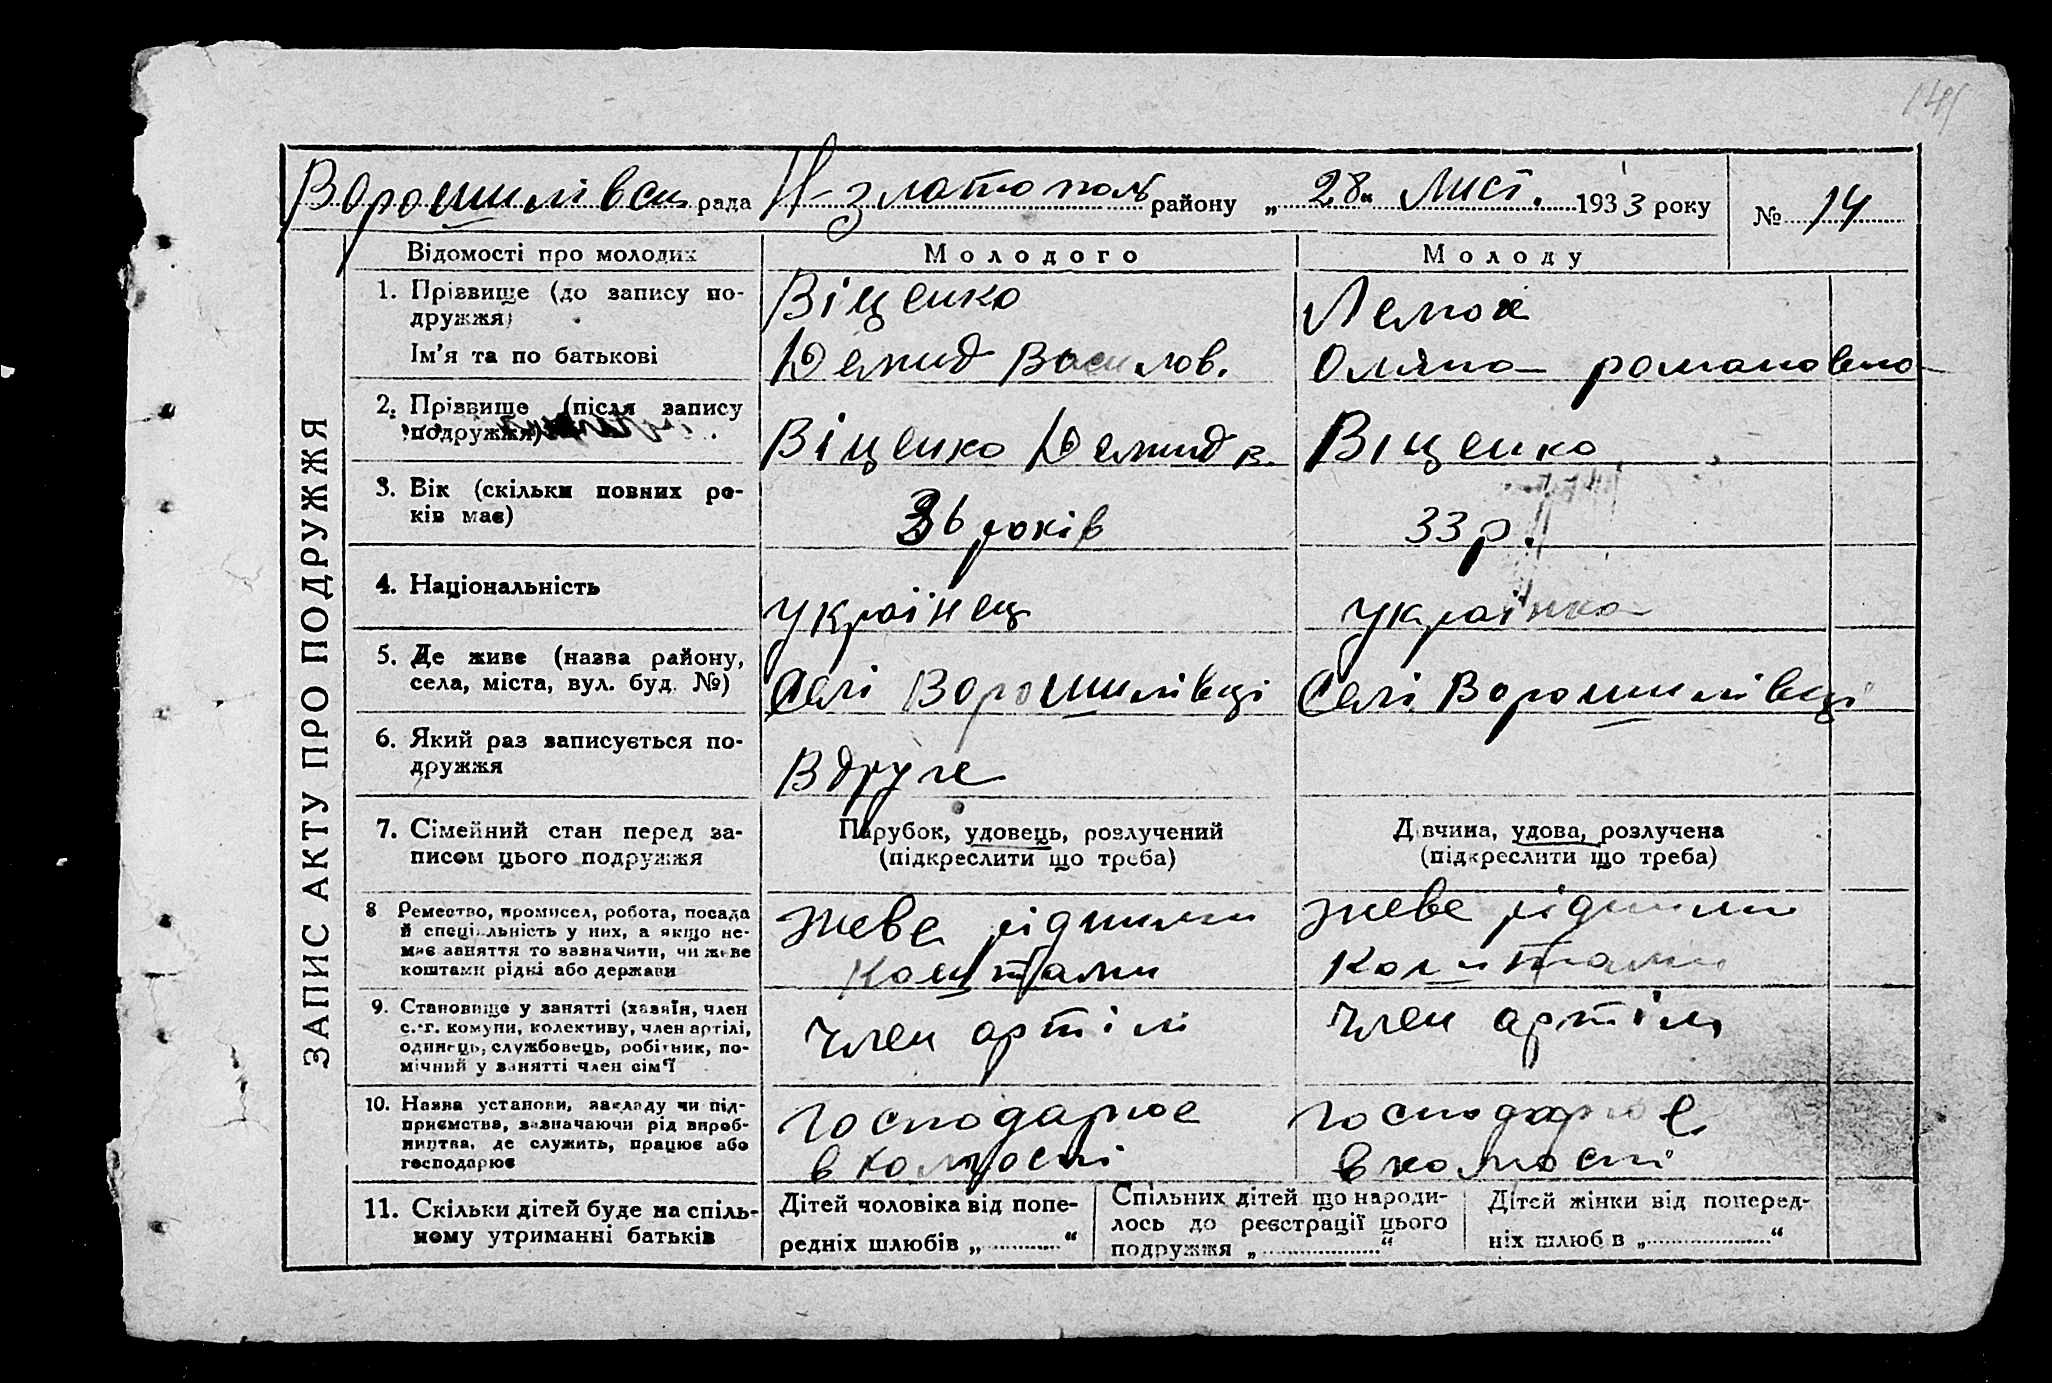 Ворошилівськ рада Н-златополь району „28“ Лист. 1933 року № 14
ЗАПИС АКТУ ПРО ПОДРУЖЖЯ
Відомості про молодих
Молодого
Молоду
1. Прізвище (до запису по-
дружжя)
Віценко
Лемох
Ім'я та по батькові
Демид Василов.
Оляна романовна
2. Прізвище (після запису
подружжя)
Віценко Демид В.
Віценко
3. Вік (скільки повних ро-
ків має)
36 років
33 р.
4. Національність
українец
українка
5. Де живе (назва району,
села, міста, вул. буд. №)
Селі Ворошилівці
Селі Ворошилівці
6. Який раз записується по-
дружжя
Вдруге
7. Сімейний стан перед за-
писом цього подружжя
Парубок, удовець, розлучений
(підкреслити що треба)
Дівчина, удова, розлучена
(підкреслити що треба)
8 Ремество, промисел, робота, посада
й спеціяльність у них, а якщо не-
має заняття то зазначити, чи живе
коштами рідні або держави
жеве рідними
коштами
жеве рідними
коштами
9. Становище у занятті (хазяїн, член
с.-г. комуни, колективу, член артілі,
одинець, службовець, робітник, по-
мічний у занятті член сім'ї
член артілі
член артілі
10. Назва установи, закладу чи під-
приємства, зазначаючи рід вироб-
ництва, де служить, працює або
господарює
господарює
в колгоспі
господарює
в колгоспі
11. Скільки дітей буде на спіль-
ному утриманні батьків
Дітей чоловіка від попе-
редніх шлюбів „..........“
Спільних дітей що народи-
лось до реєстрації цього
подружжя „..........“
Дітей жінки від поперед-
ніх шлюбів „..........“